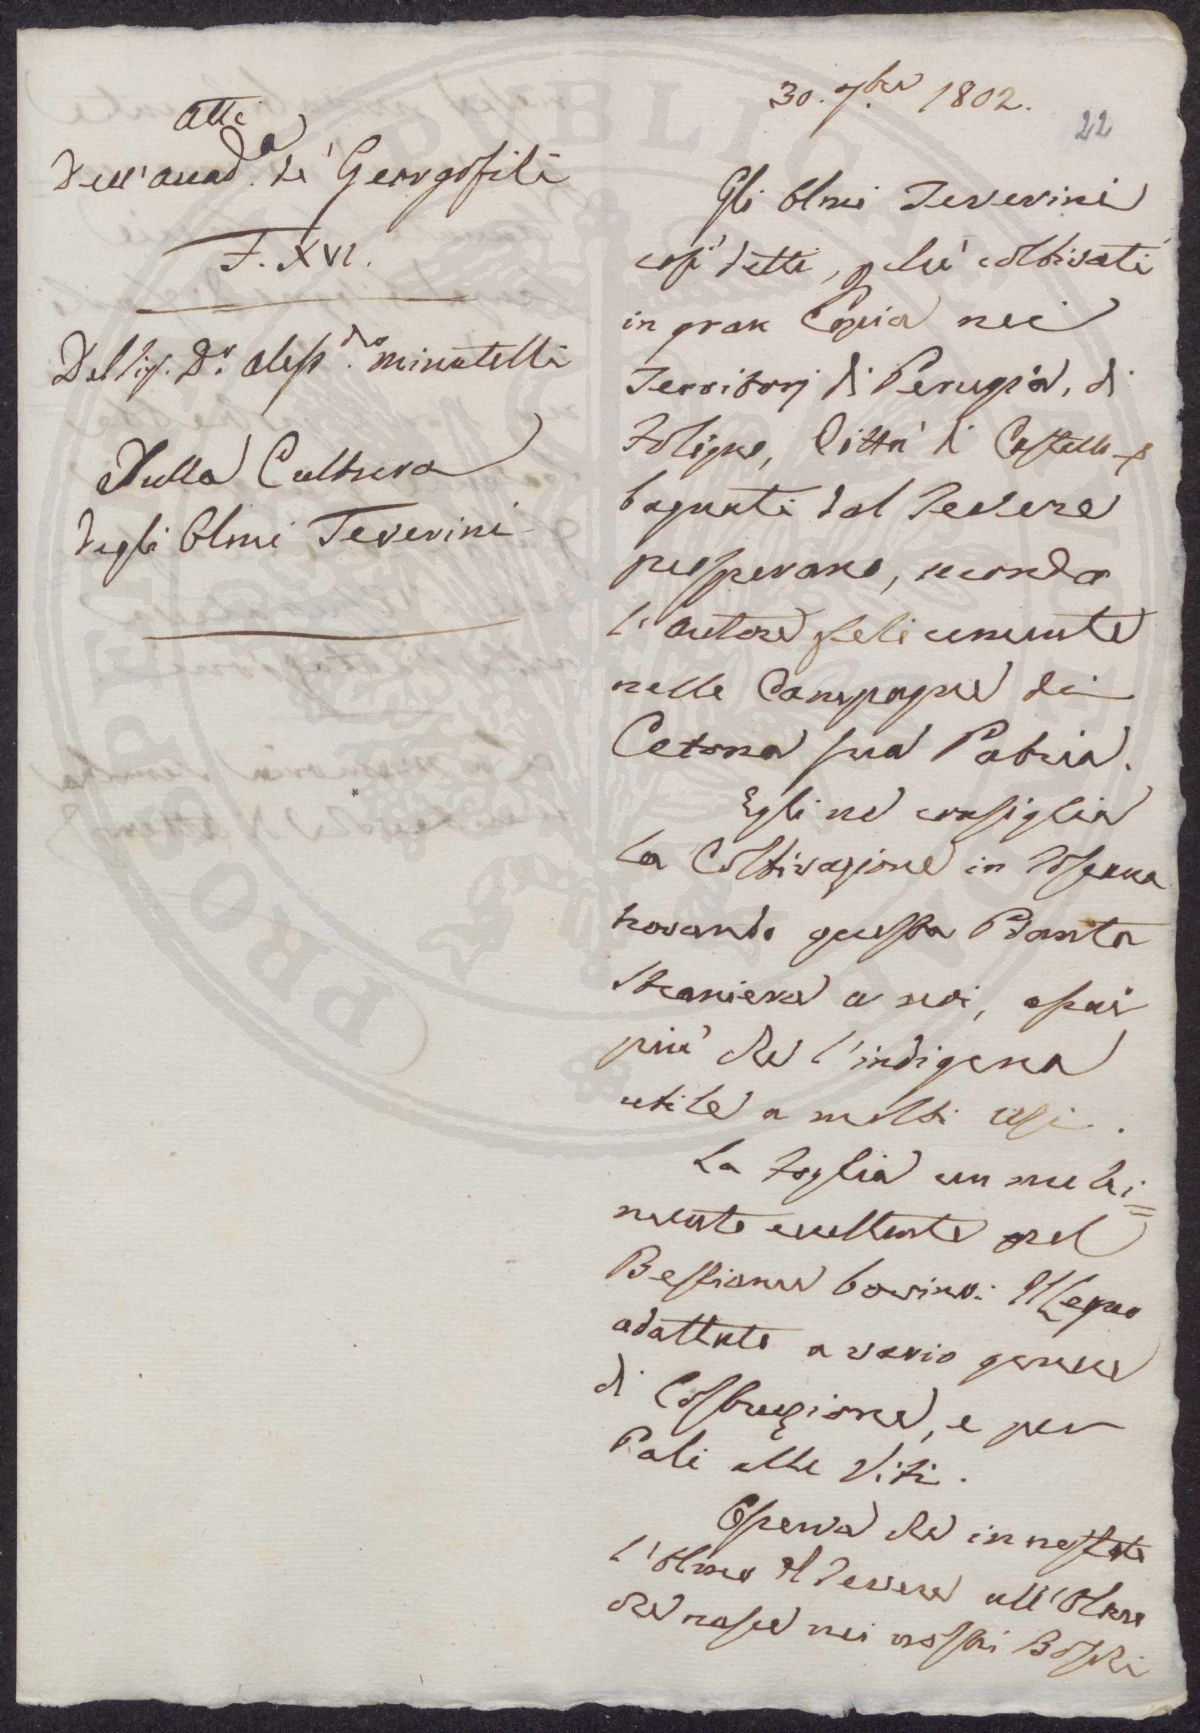 30. 7bre 1802.
22
Atti
Dell'Accad.a de' Georgofili
F. XVI.
Del Sig. Dr. Aless.dro Minutelli
Sulla Cultura
degli Olmi Teverini
Gli Olmi Teverini
così detti, p chè coltivati
in gran Copia nei
Territorj di Perugia, di
Foligno, Città di Castello
bagnati dal Tevere
prosperano, secondo
l'Autore felicemente
nelle Campagne di
Cetona sua Patria.
Egli ne consiglia
la Coltivazione in Toscana
trovando questa Pianta
straniera a noi, assai
più che l'indigena
utile a molti usi.
La Foglia un nutri=
mento eccellente pel
Bestiame bovino: Il Legno
adattato a vario genere
di Costruzione, e per
Pali alle Viti.
Osserva che innestato
l'Olmo di Tevere all'Olmo
che nasce nei nostri Boschi
PRO PUBLICA